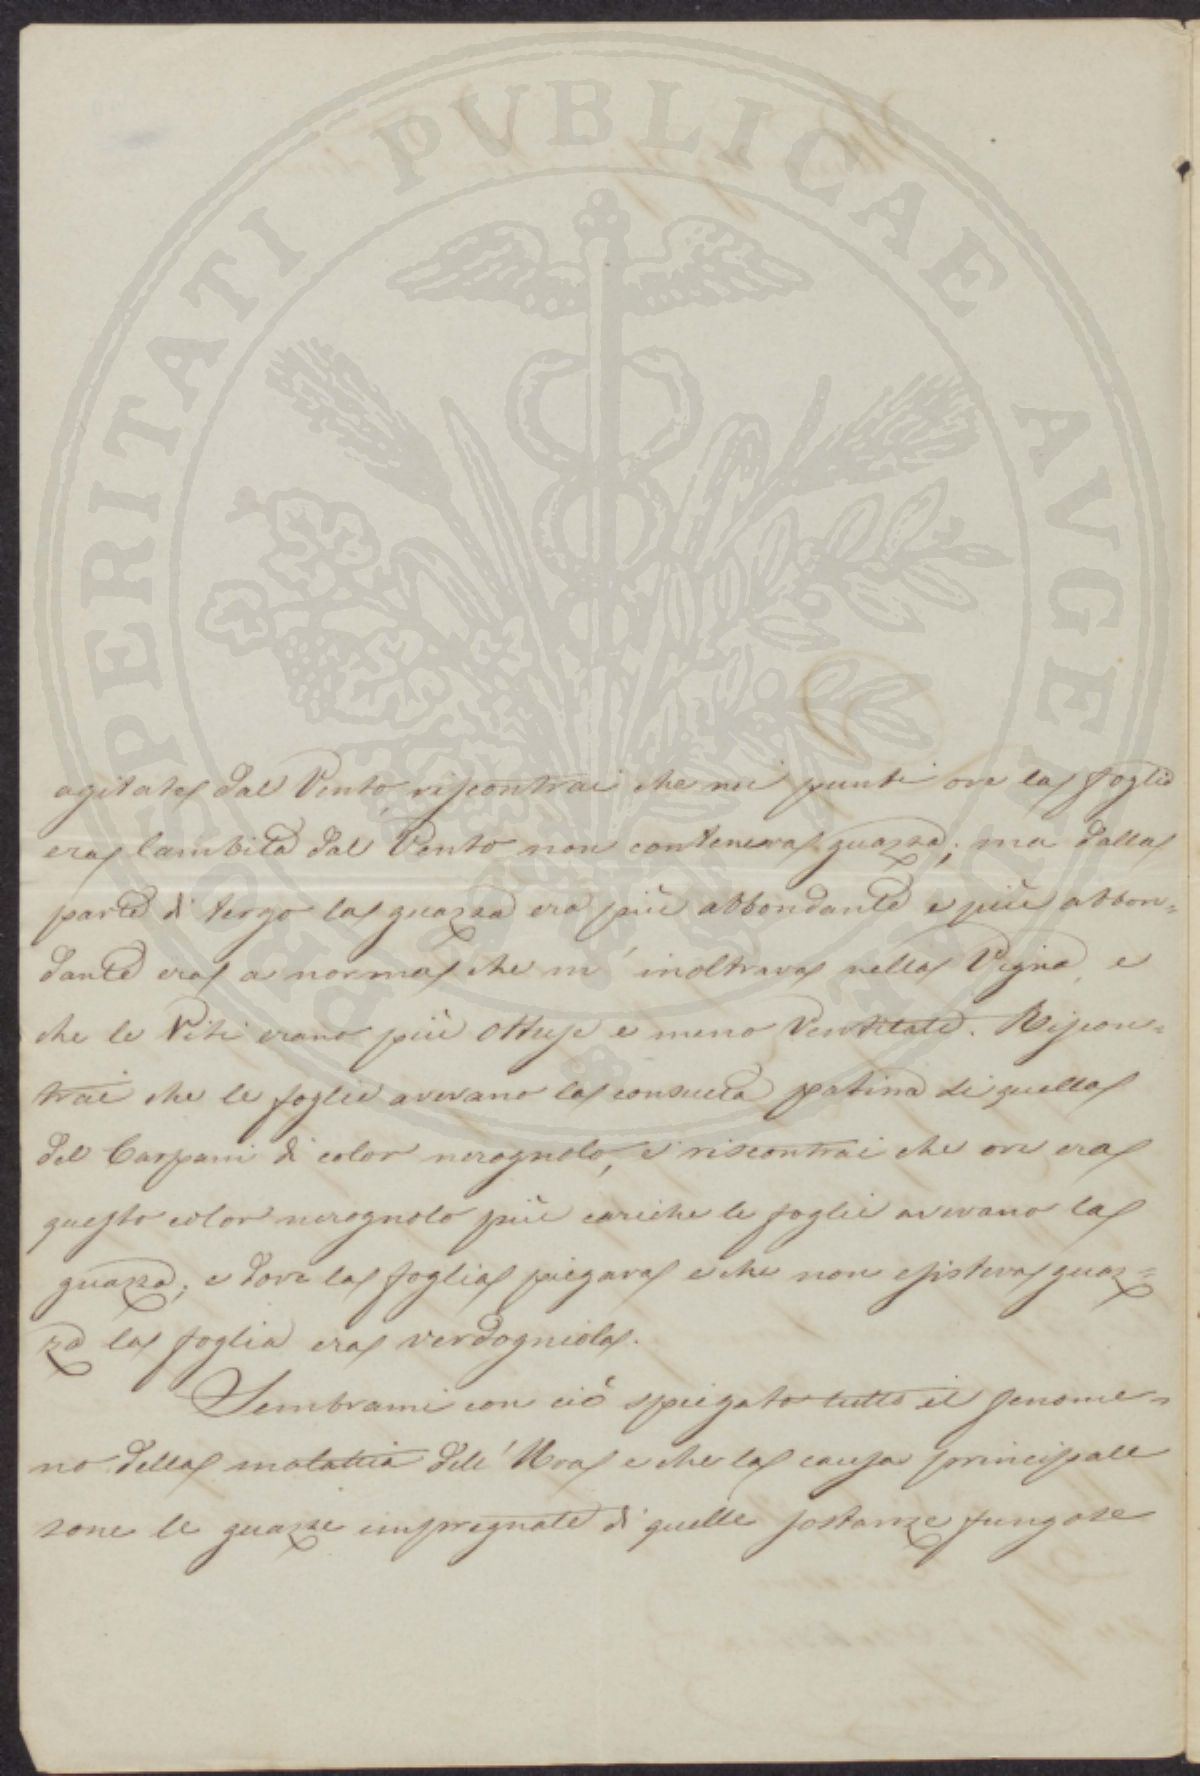 PROSPERITATI PUBLICAE AUGENDAE
agitate dal Vento, riscontrai che nei punti ove la foglia
era lambita dal Vento non conteneva guazza; ma dalla
parte di tergo la guazza era più abbondante e più abbon=
dante era a norma che m' inoltrava nella Vigna, e
che le Viti erano più ottuse e meno Ventitate. Riscon=
trai che le foglie avevano la consueta patina di quella
del Carpani di color nerognolo, e riscontrai che ove era
questo color nerognolo più cariche le foglie avevano la
guazza; e dove la foglia piegava e che non esisteva guaz=
za la foglia era verdogniola.
Sembrami con ciò spiegato tutto il fenome=
no della malatia dell' Uva e che la causa principale
sone le guazze impregnate di quelle sostanze fungose